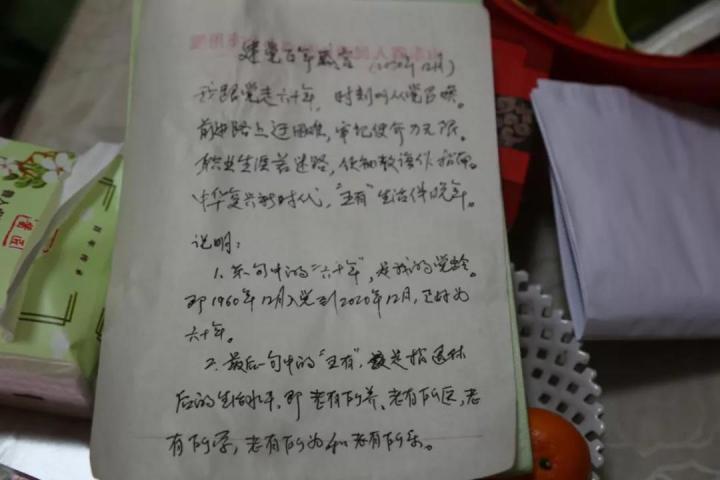 建党百年感言(2020年12月)
我跟党走六十年, 时刻听从党召唤。
前进路上迎困难, 牢记使命力无限。
职业生涯若迷路, 伟如教诲作指南。
中华复兴新时代, “五有”生活伴晚年。
说明:
1. 第一句中的“六十年”, 是我的党龄。
即1960年12月入党到2020年12月, 正好为
六十年。
2. 最后一句中的“五有”, 是指退休
后的生活水平, 即老有所养、老有所医, 老
有所学, 老有所为和老有所乐。